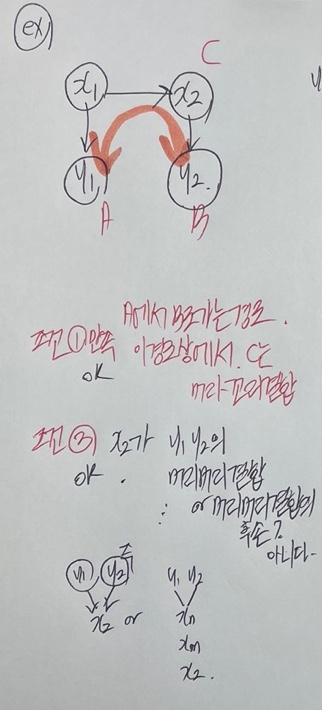 ex)
C
x₁ x₂
y₁ y₂.
A B
A에서 B로가는경로.
조건 ① 만족 이경로상에서. C는
OK 머리-꼬리결합
조건 ③ x₂가 y₁ y₂의
OK. 머리머리결합
∴ or 머리머리결합의
후손?
아니다-
y₁ y₂ y₁ y₂
x₂ or xₙ
xₘ
x₂.